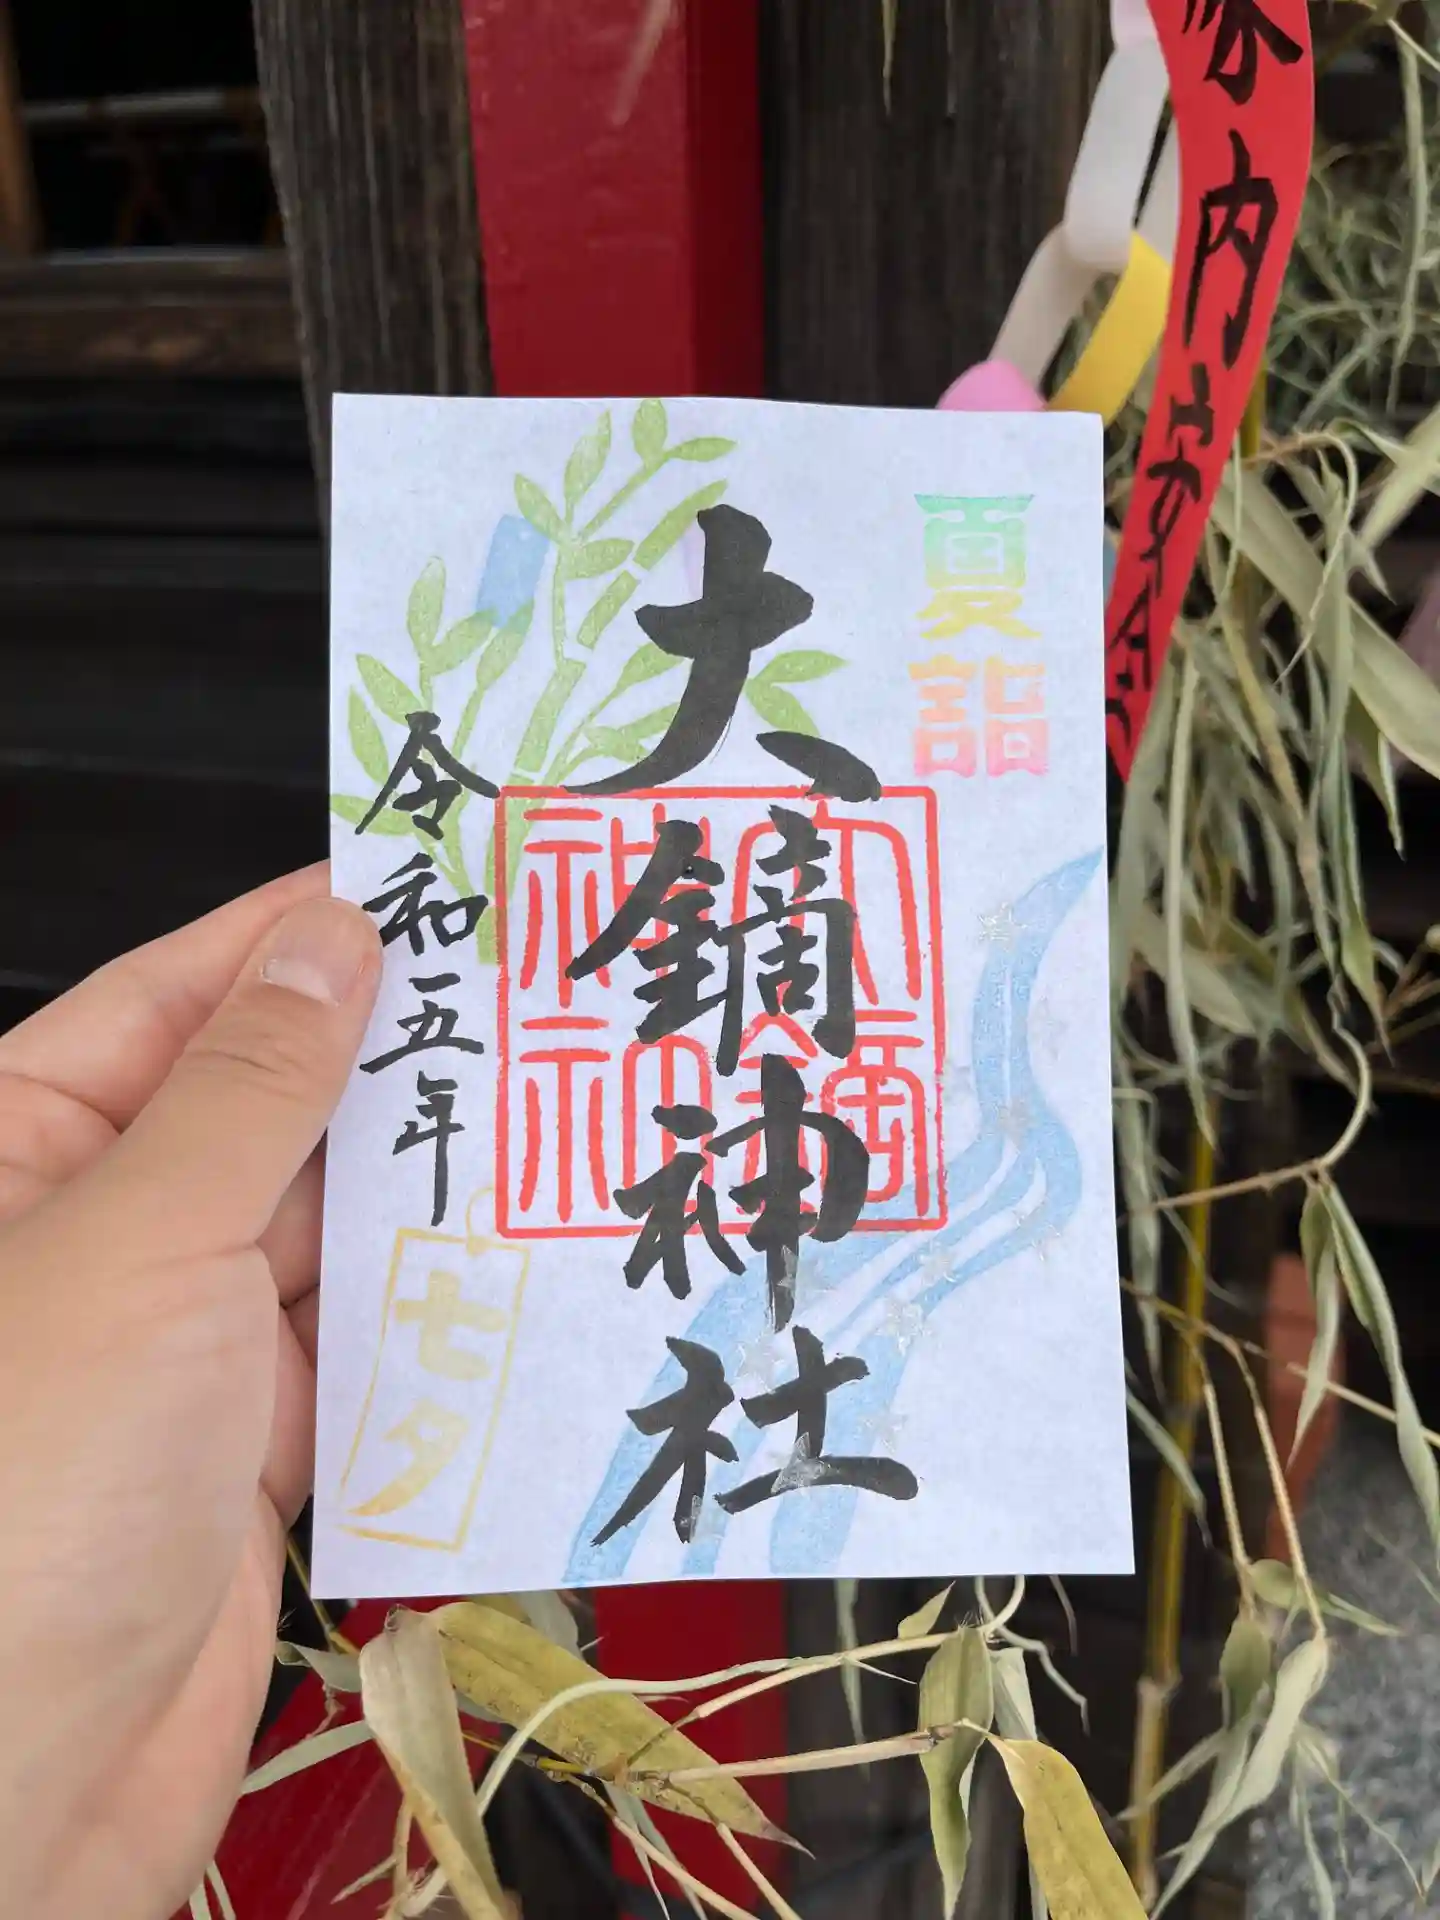 夏詣
大鏑神社
大鏑神社
令和五年
七夕
家内安全